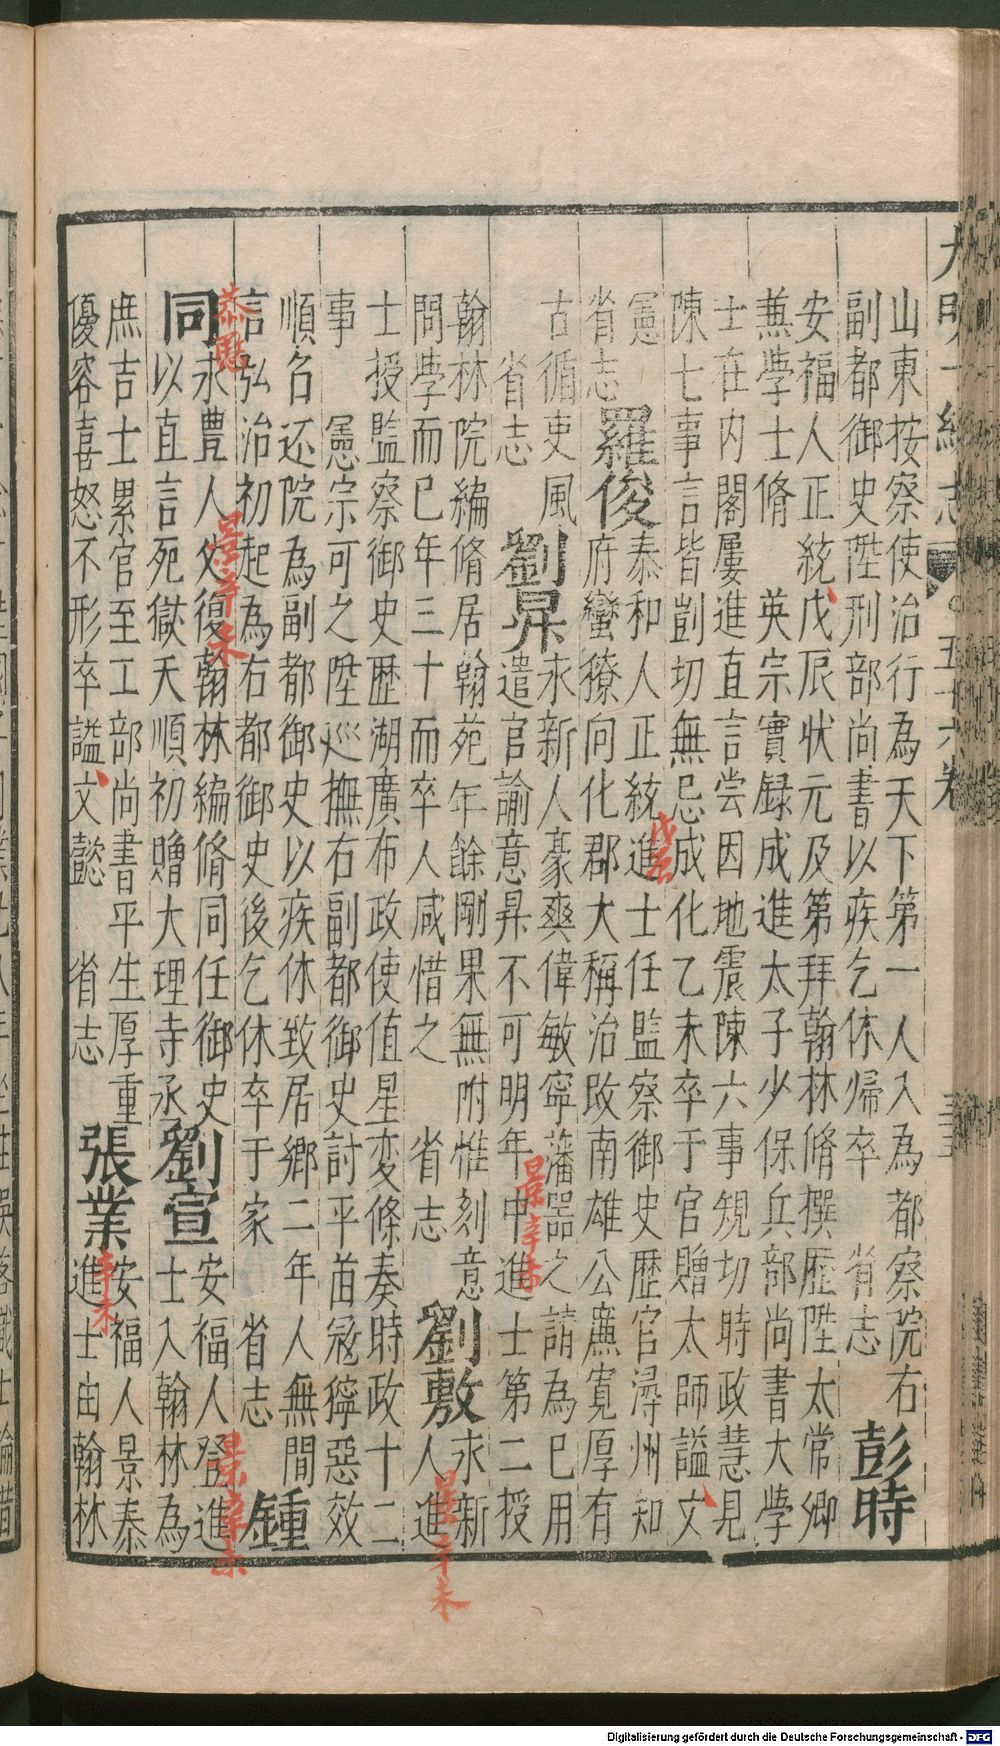 山東按察使治行為天下第一人入為都察院右
副都御史陞刑部尚書以疾乞休帰卒　省志　彭時
安福人正統戊辰状元及第拜翰林脩撰歷陞太常卿
蕪學士脩　英宗實録成進太子少保兵部尚書大學
士在内閣屢進直言尝因地震陳六事規切時政慧見
陳七事言皆剴切無忌成化乙未卒于官贈太師諡文
憲
省志　羅俊
泰和人正統進士任監察御史歷官潯州知
府蠻獠向化郡大稱治改南雄公廉寛厚有
古循吏風
省志　劉昇
永新人豪爽偉敏寧藩器之請為巳用
遣官諭意昇不可明年中進士第二授
翰林院編脩居翰苑年餘剛果無附惟刻意
問學而巳年三十而卒人咸惜之　省志　劉敷
永新
人進
士授監察御史歷湖廣布政使值星变條奏時政十二
事　憲宗可之陞巡撫右副都御史討平苗冦獰惡效
順名还院為副都御史以疾休致居鄉二年人無間
言弘治初起為右都御史後乞休卒于家　省志　鍾
同
永豊人父復翰林編脩同任御史
以直言死獄天順初贈大理寺丞
劉宣
安福人登進
士入翰林為
庶吉士累官至工部尚書平生厚重
優容喜怒不形卒諡文懿　省志
張業
安福人景泰
進士由翰林
大明一統志
五十六卷
三十三
戊辰
景辛未
景辛未
景辛未
景辛未
恭愍
辛未
Digitalisierung gefördert durch die Deutsche Forschungsgemeinschaft - DFG